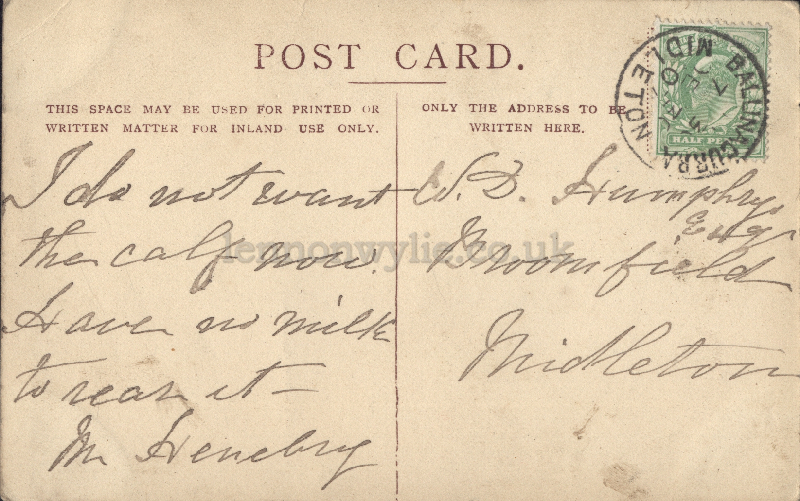 POST CARD.
THIS SPACE MAY BE USED FOR PRINTED OR
WRITTEN MATTER FOR INLAND USE ONLY.
ONLY THE ADDRESS TO BE
WRITTEN HERE.
BALLINACURRA
MIDLETON
HALF PE
I do not want
the calf now.
Have no milk
to rear it —
M Henebry
W. D. Humphrys
Broomfield
Midleton
lennonwylie.co.uk